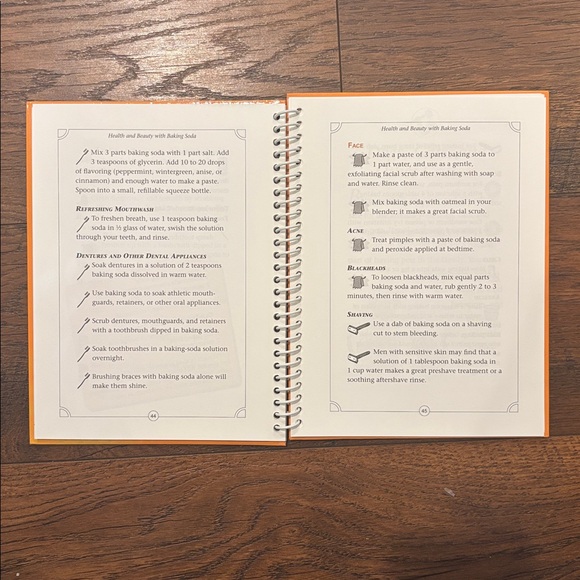 Health and Beauty with Baking Soda
Mix 3 parts baking soda with 1 part salt. Add
3 teaspoons of glycerin. Add 10 to 20 drops
of flavoring (peppermint, wintergreen, anise, or
cinnamon) and enough water to make a paste.
Spoon into a small, refillable squeeze bottle.
REFRESHING MOUTHWASH
To freshen breath, use 1 teaspoon baking
soda in ½ glass of water, swish the solution
through your teeth, and rinse.
DENTURES AND OTHER DENTAL APPLIANCES
Soak dentures in a solution of 2 teaspoons
baking soda dissolved in warm water.
Use baking soda to soak athletic mouth-
guards, retainers, or other oral appliances.
Scrub dentures, mouthguards, and retainers
with a toothbrush dipped in baking soda.
Soak toothbrushes in a baking-soda solution
overnight.
Brushing braces with baking soda alone will
make them shine.
44
Health and Beauty with Baking Soda
FACE
Make a paste of 3 parts baking soda to
1 part water, and use as a gentle,
exfoliating facial scrub after washing with soap
and water. Rinse clean.
Mix baking soda with oatmeal in your
blender; it makes a great facial scrub.
ACNE
Treat pimples with a paste of baking soda
and peroxide applied at bedtime.
BLACKHEADS
To loosen blackheads, mix equal parts
baking soda and water, rub gently 2 to 3
minutes, then rinse with warm water.
SHAVING
Use a dab of baking soda on a shaving
cut to stem bleeding.
Men with sensitive skin may find that a
solution of 1 tablespoon baking soda in
1 cup water makes a great preshave treatment or a
soothing aftershave rinse.
45